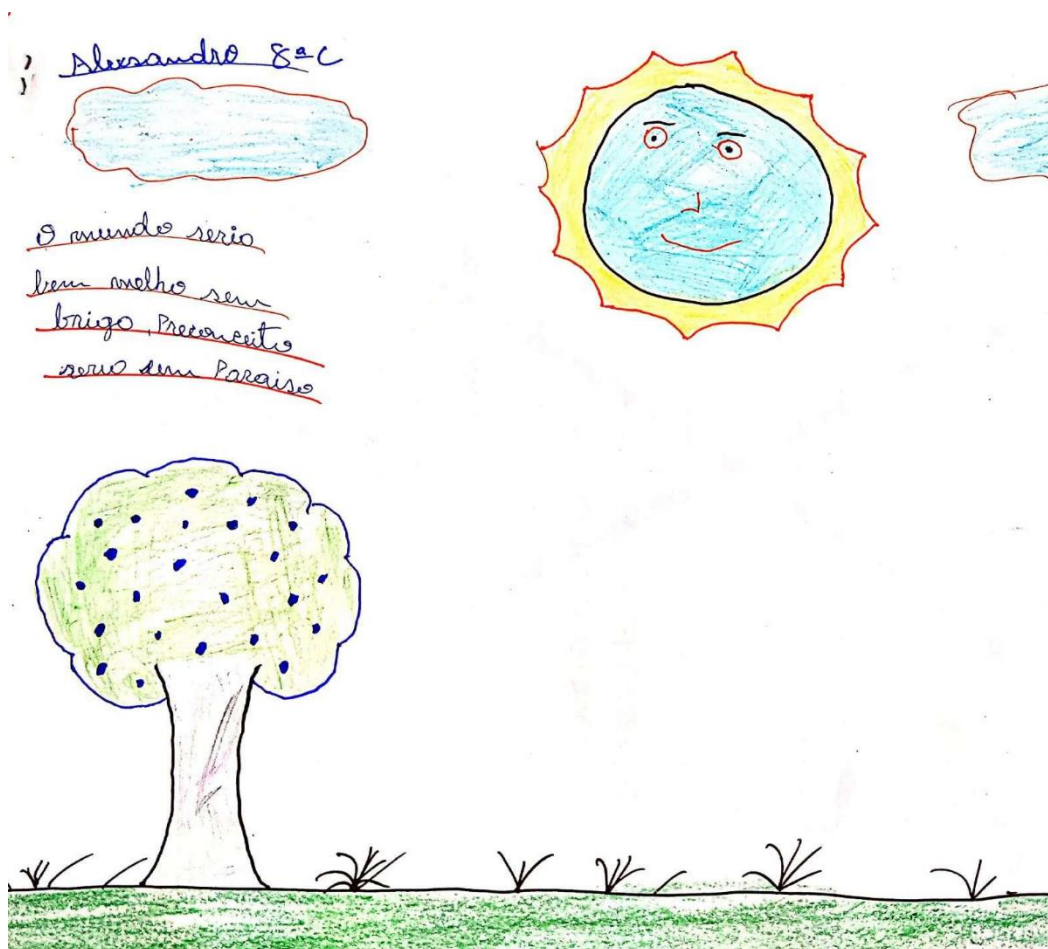 Alexsandro 8ª C
O mundo seria
bem melho sem
briga, Preconceito
seria sem Paraiso